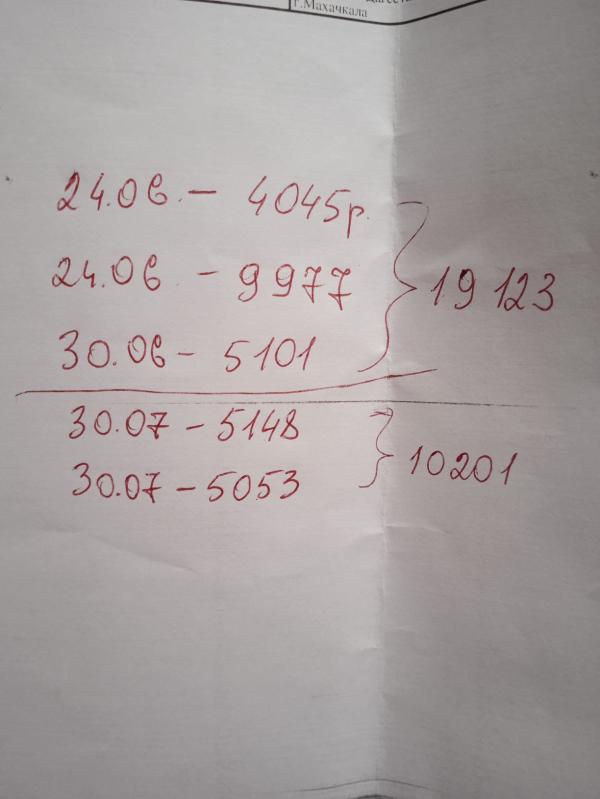 г.Махачкала
24.06 - 4045р.
24.06 - 9977
30.06 - 5101
19 123
30.07 - 5148
30.07 - 5053
10201